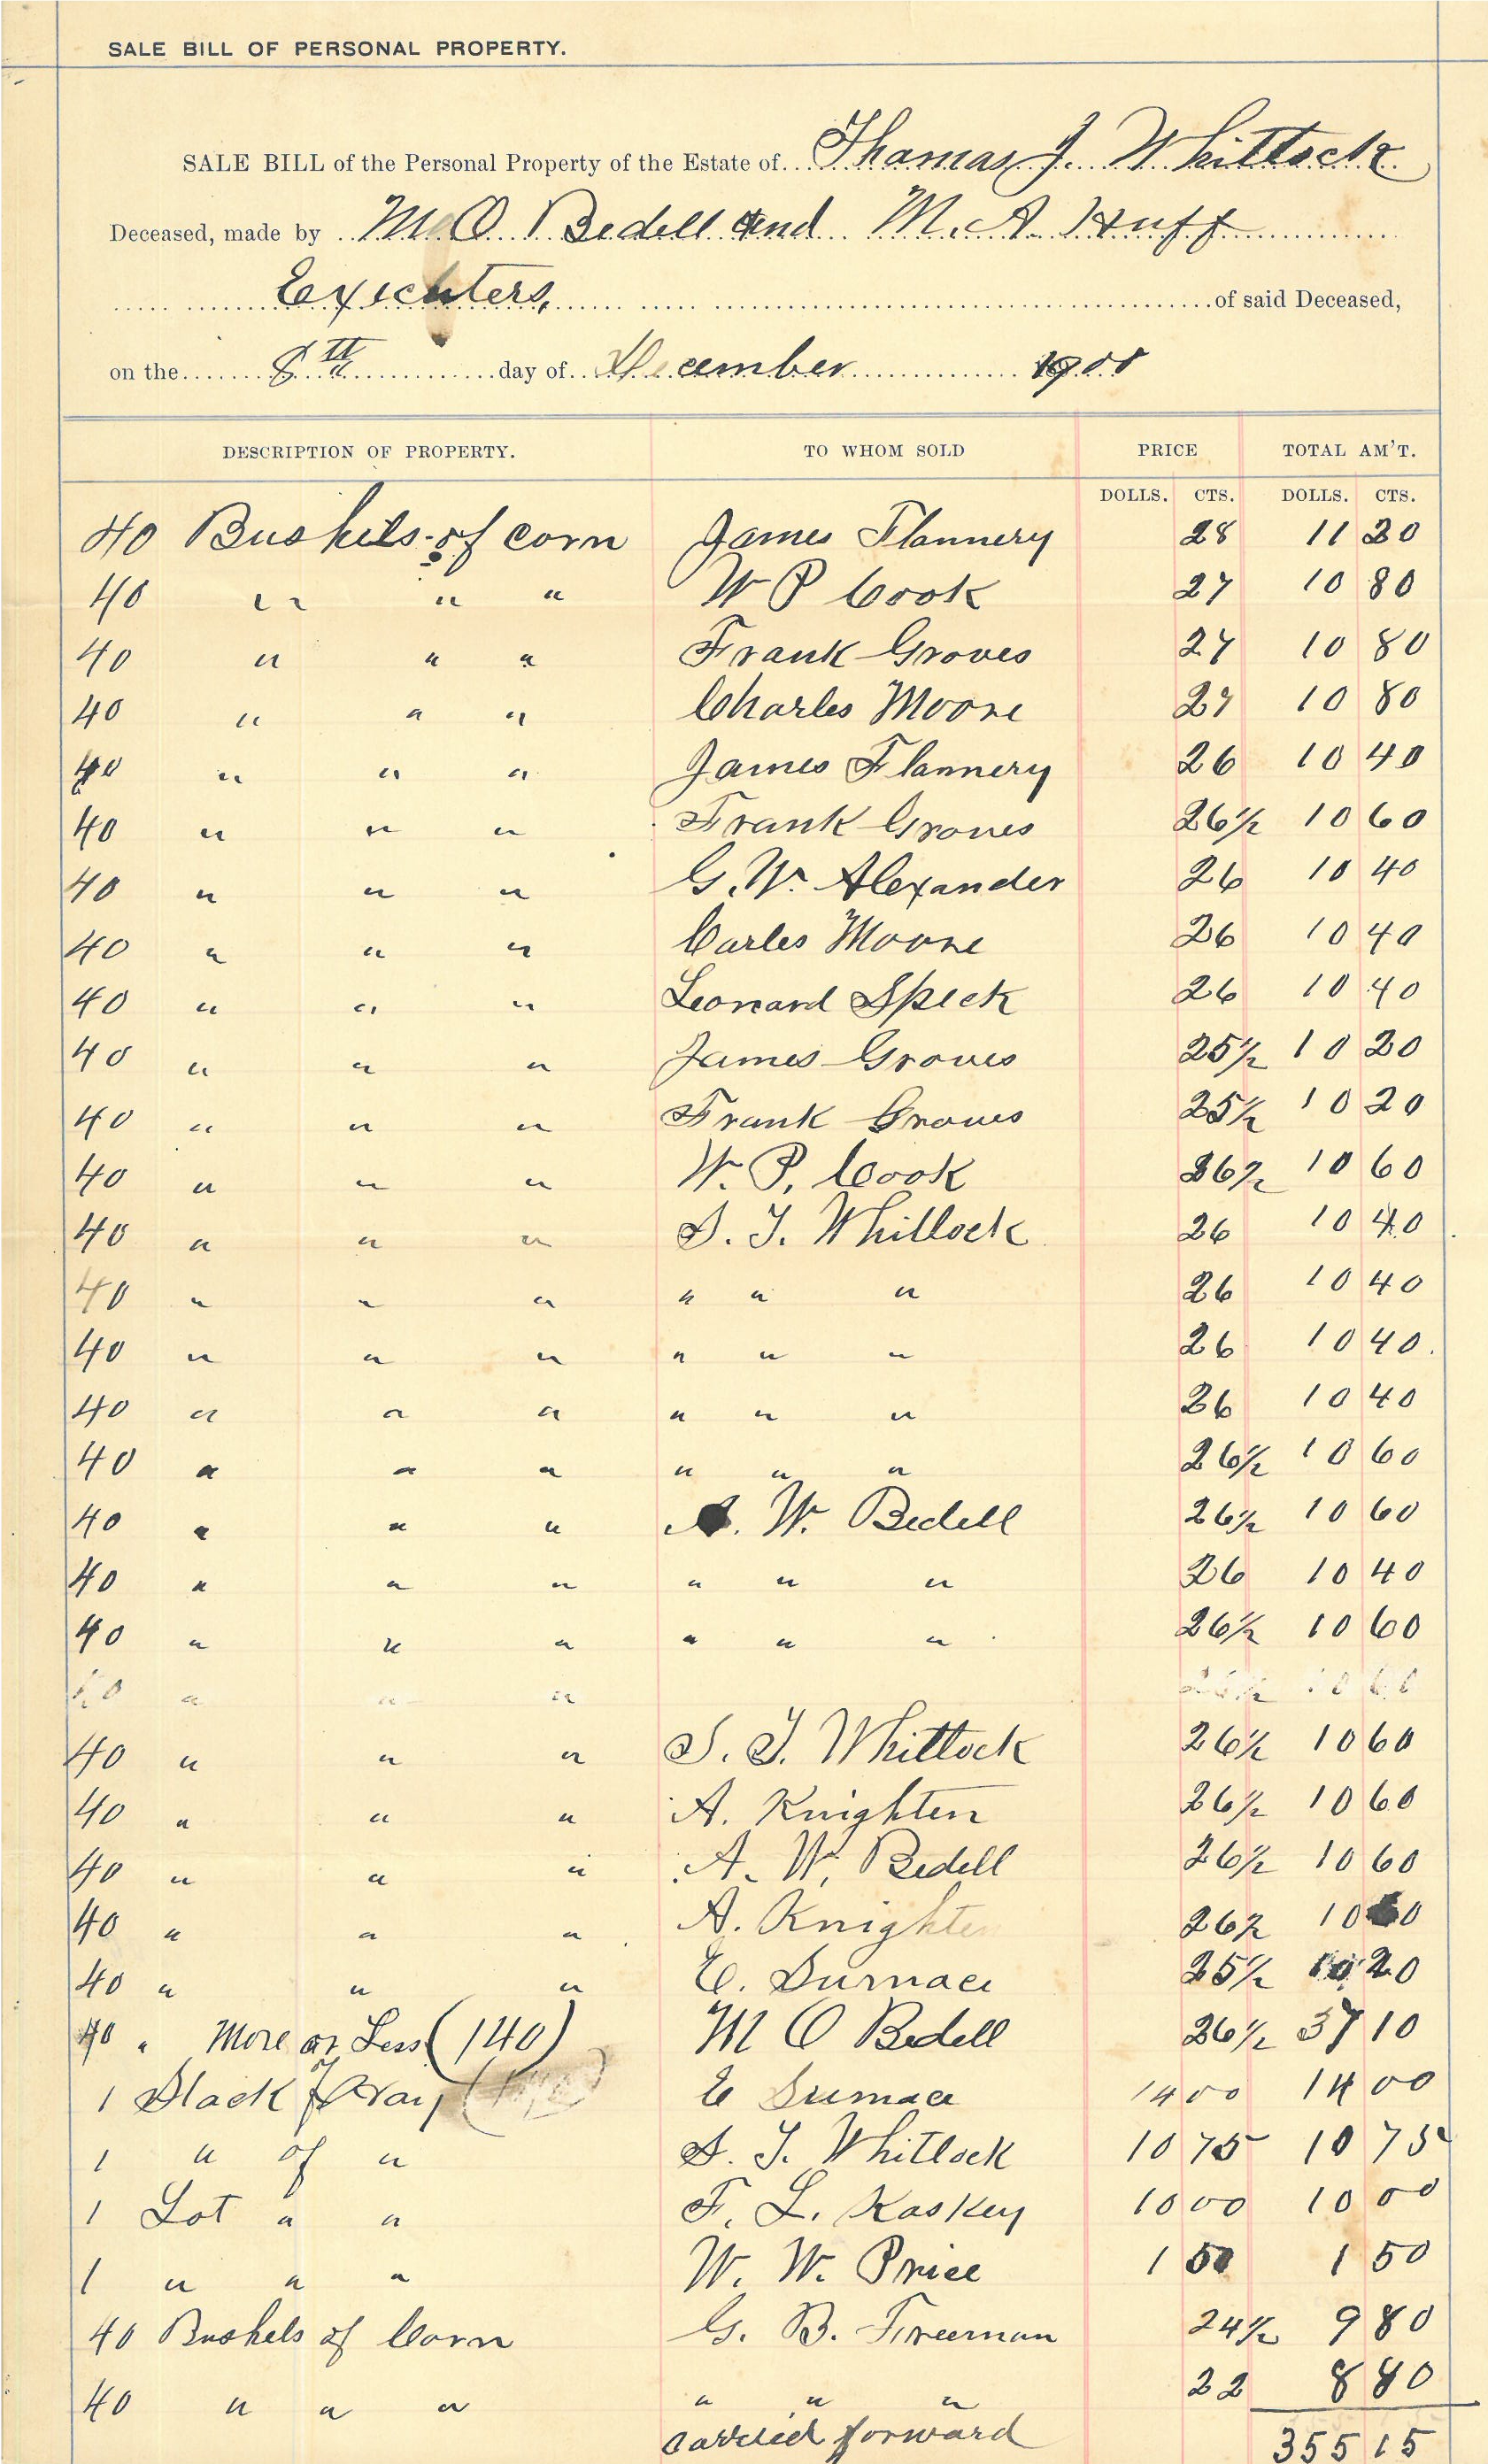 SALE BILL OF PERSONAL PROPERTY.
SALE BILL of the Personal Property of the Estate of Thomas J. Whittock
Deceased, made by M O Bedell and M. A. Huff
Exechters, of said Deceased,
on the 8th day of December 1900
DESCRIPTION OF PROPERTY. TO WHOM SOLD PRICE TOTAL AM'T.
DOLLS. CTS. DOLLS. CTS.
40 Bushels of corn James Flannery 28 11 20
40 " " " W P Cook 27 10 80
40 " " " Frank Groves 27 10 80
40 " " " Charles Moore 27 10 80
40 " " " James Flannery 26 10 40
40 " " " Frank Groves 26½ 10 60
40 " " " G. W. Alexander 26 10 40
40 " " " Carles Moore 26 10 40
40 " " " Leonard Speck 26 10 40
40 " " " James Groves 25½ 10 20
40 " " " Frank Groves 25½ 10 20
40 " " " W. P. Cook 26½ 10 60
40 " " " S. T. Whitlock 26 10 40
40 " " " " " " 26 10 40
40 " " " " " " 26 10 40
40 " " " " " " 26 10 40
40 " " " " " " 26½ 10 60
40 " " " A. W. Bedell 26½ 10 60
40 " " " " " " 26 10 40
40 " " " " " " 26½ 10 60
40 " " " 26½ 10 60
40 " " " S. T. Whittock 26½ 10 60
40 " " " A. Knighten 26½ 10 60
40 " " " A. W. Bedell 26½ 10 60
40 " " " A. Knighten 26½ 10 60
40 " " " E. Surnace 25½ 10 20
40 " More or Less (140) M O Bedell 26½ 37 10
1 Stack of Hay E Surnace 14 00 14 00
1 " of " S. T. Whitlock 10 75 10 75
1 Lot " " F. L. Kaskey 10 00 10 00
1 " " " W. W. Price 1 50 1 50
40 Bushels of Corn G. B. Freeman 24½ 9 80
40 " " " " " " 22 8 80
carried forward 355 15